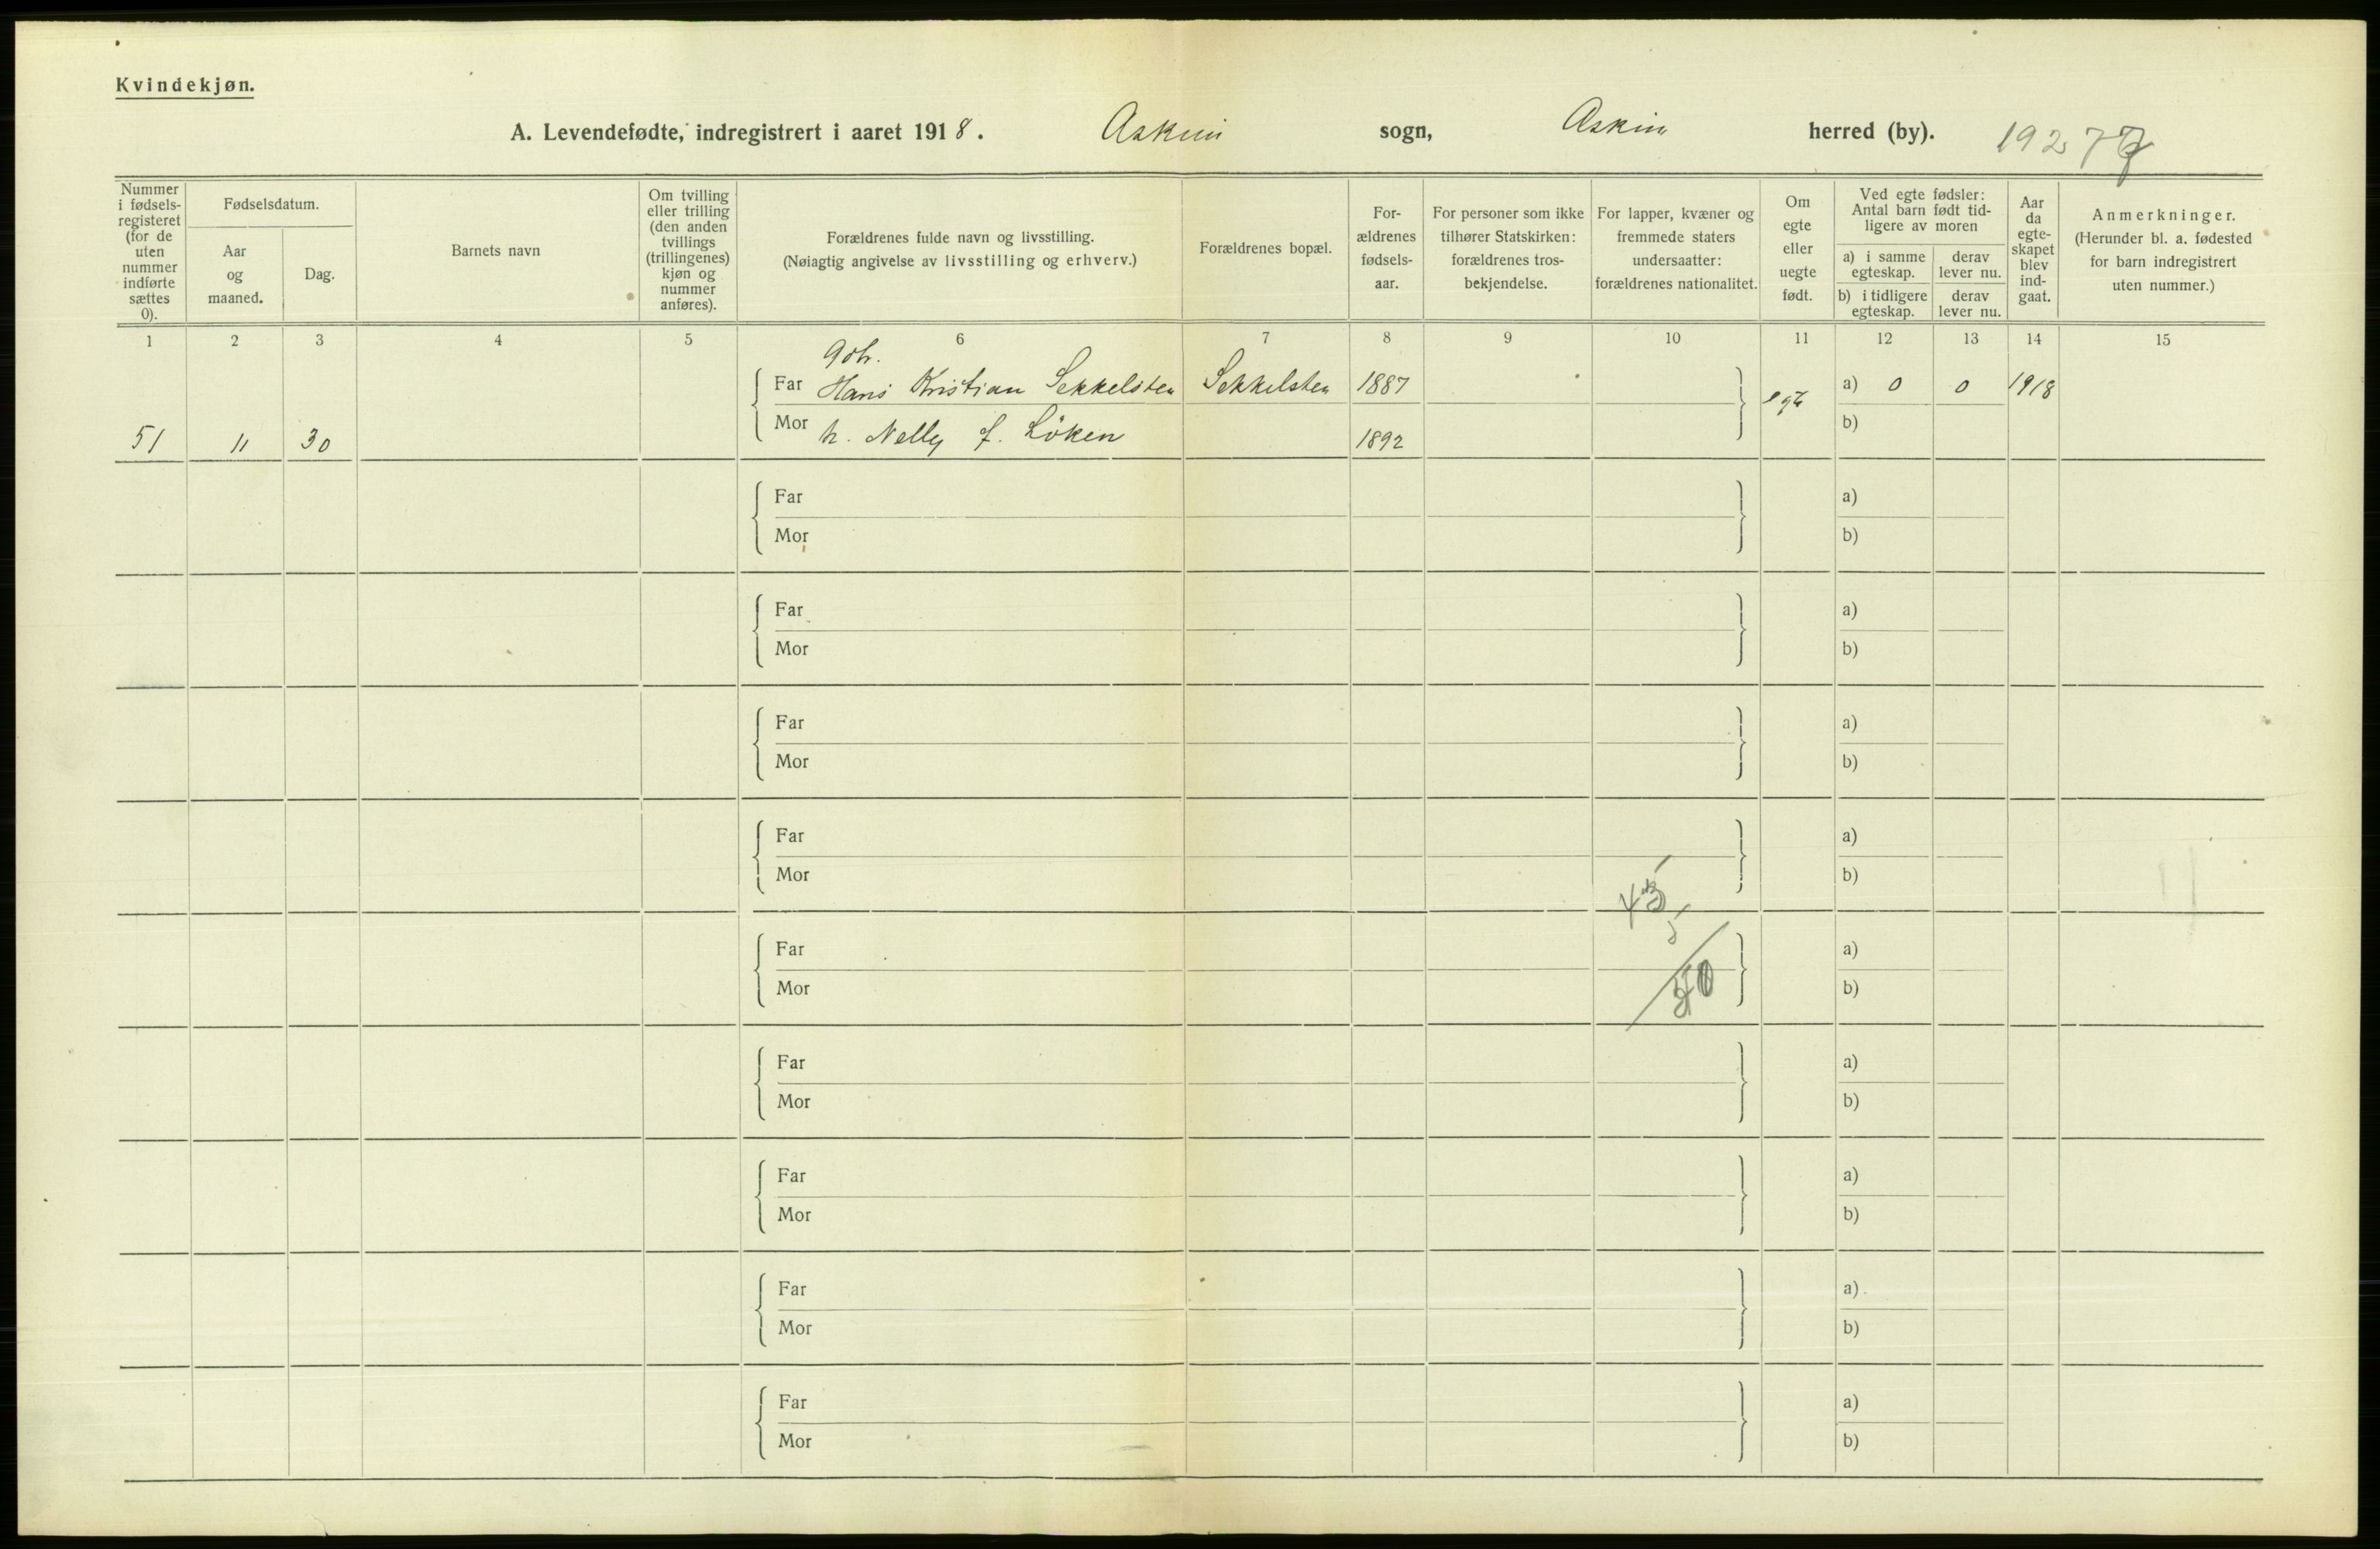 Kvindekjøn.
A. Levendefødte, indregistrert i aaret 1918. Askim sogn, Askim herred (by).
Nummer i fødsels-registeret (for de uten nummer indførte sættes 0).
Fødselsdatum.
Aar og maaned.
Dag.
Barnets navn
Om tvilling eller trilling (den anden tvillings (trillingenes) kjøn og nummer anføres).
Forældrenes fulde navn og livsstilling.
(Nøiagtig angivelse av livsstilling og erhverv.)
Forældrenes bopæl.
For-ældrenes fødsels-aar.
For personer som ikke tilhører Statskirken: forældrenes tros-bekjendelse.
For lapper, kvæner og fremmede staters undersaatter: forældrenes nationalitet.
Om egte eller uegte født.
Ved egte fødsler: Antal barn født tid-ligere av moren
a) i samme egteskap.
derav lever nu.
b) i tidligere egteskap.
derav lever nu.
Aar da egte-skapet blev ind-gaat.
Anmerkninger.
(Herunder bl. a. fødested for barn indregistrert uten nummer.)
1 2 3 4 5 6 7 8 9 10 11 12 13 14 15
Far Hans Kristian Sekkelsten Sekkelsten 1887 egte a) 0 0 1918
51 11 30 Mor h. Nelly f. Løken 1892 b)
Far a)
Mor b)
Far a)
Mor b)
Far a)
Mor b)
Far a)
Mor b)
Far a)
Mor b)
Far a)
Mor b)
Far a)
Mor b)
Far a)
Mor b)
Far a)
Mor b)